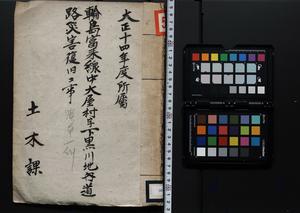 大正十四年度所属
輪島富来線中大屋村字下黒川地内道
路災害復旧工事
土木課